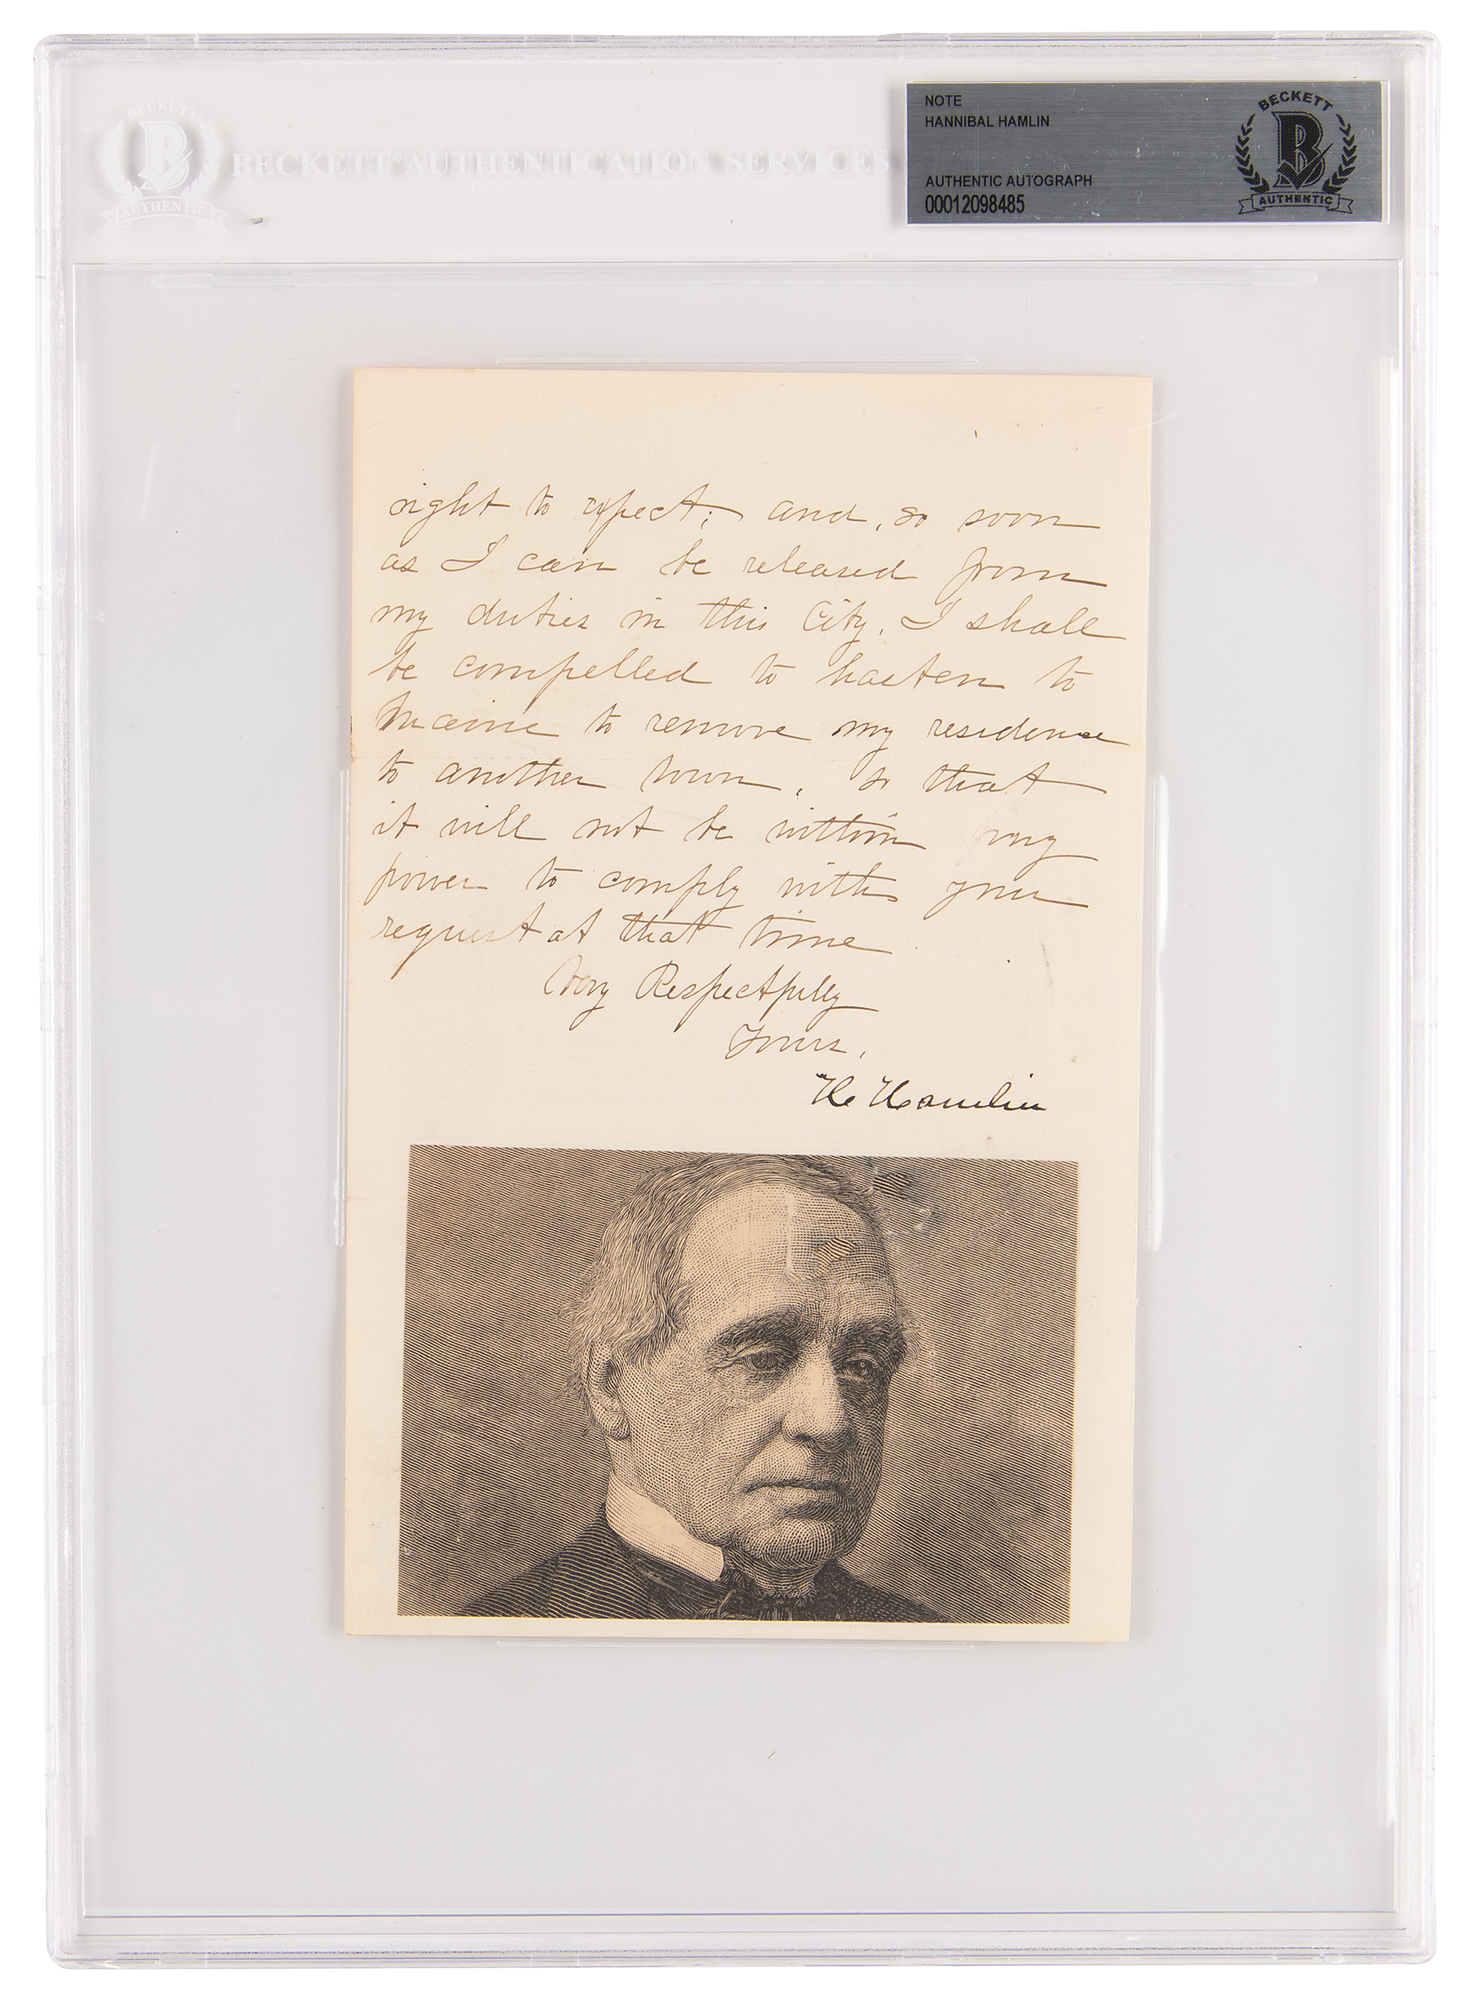 BECKETT
B
AUTHENTIC
BECKETT® AUTHENTICATION SERVICES
NOTE
HANNIBAL HAMLIN
AUTHENTIC AUTOGRAPH
00012098485
BECKETT
B
AUTHENTIC
right to expect; and, so soon
as I can be released from
my duties in this City, I shall
be compelled to hasten to
Maine to remove my residence
to another town, so that
it will not be within my
power to comply with your
request at that time.
Very Respectfully
Yours,
H Hamlin